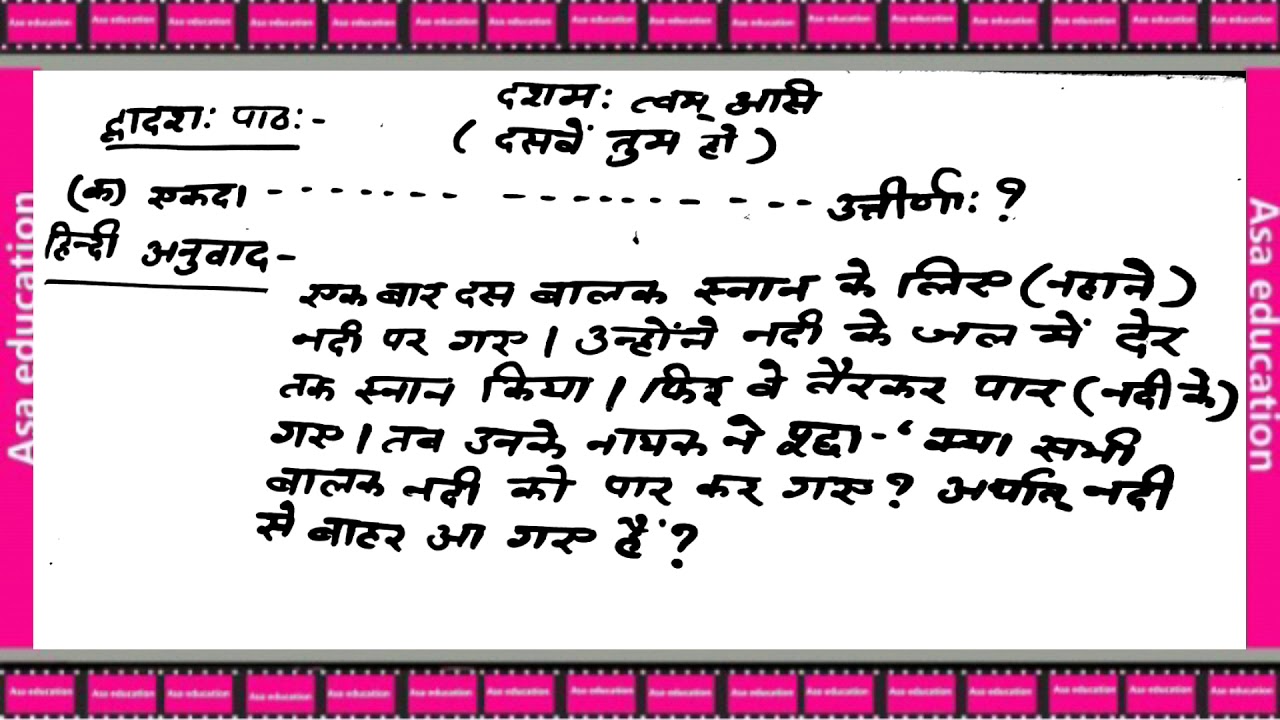 Asa education Asa education Asa education Asa education Asa education Asa education Asa education Asa education Asa education Asa education Asa education Asa education Asa education Asa education Asa education Asa education
द्वादशः पाठः-
दशमः त्वम् असि
(दसवें तुम हो)
(क) एकदा ------- ------- --- उत्तीर्णाः ?
हिन्दी अनुवाद-
एक बार दस बालक स्नान के लिए (नहाने)
नदी पर गए । उन्होंने नदी के जल में देर
तक स्नान किया । फिर वे तैरकर पार (नदी के)
गए । तब उनके नायक ने पूछा- ‘ क्या सभी
बालक नदी को पार कर गए ? अर्थात् नदी
से बाहर आ गए हैं' ?
Asa education
Asa education
Asa education Asa education Asa education Asa education Asa education Asa education Asa education Asa education Asa education Asa education Asa education Asa education Asa education Asa education Asa education Asa education